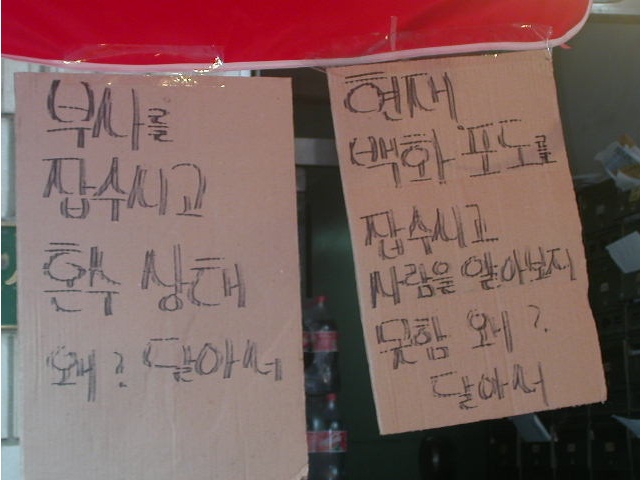 부사를
잡수시고
혼수 상태
왜? 달아서
현재
백화 포도를
잡수시고
사람을 알아보지
못함 왜?
달아서